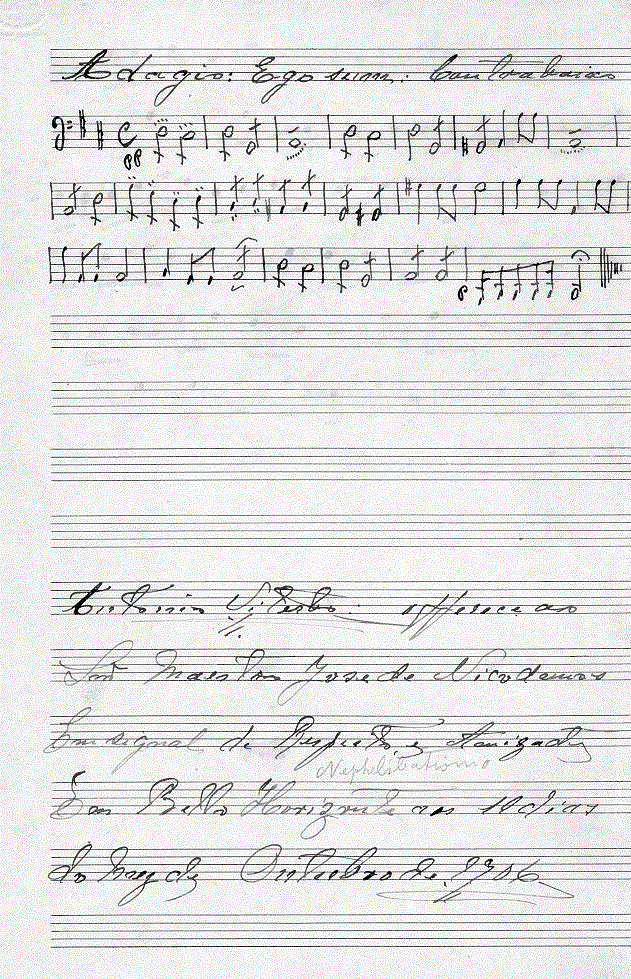 Adagio: Ego sum: Contrabaixo
pp
p
Antonio Viterbo: offerece ao
Snr Maestro Jose de Nicodemos
Em signal de Respeito, e Amizade
Em Bello Horizonte aos 10 dias
do Mez de Outubro de 1906